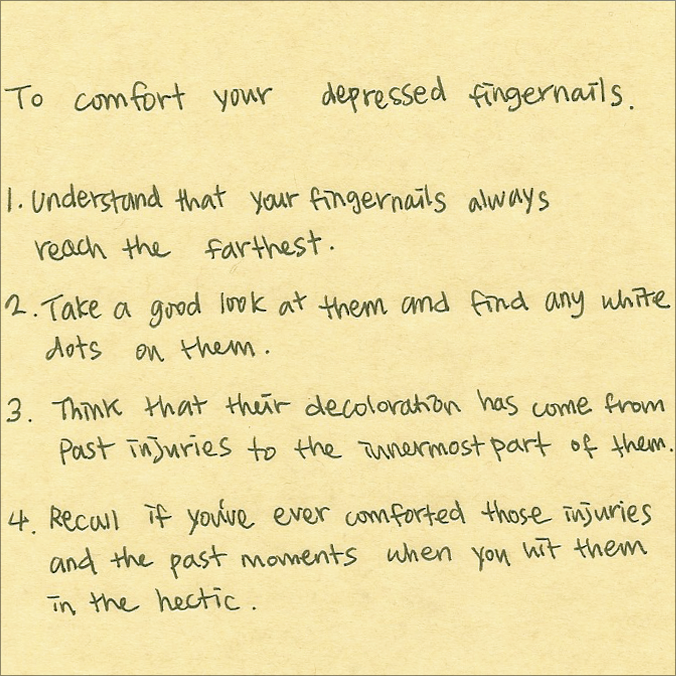 To comfort your depressed fingernails.
1. Understand that your fingernails always
reach the farthest.
2. Take a good look at them and find any white
dots on them.
3. Think that their decoloration has come from
Past injuries to the innermost part of them.
4. Recall if you've ever comforted those injuries
and the past moments when you hit them
in the hectic.